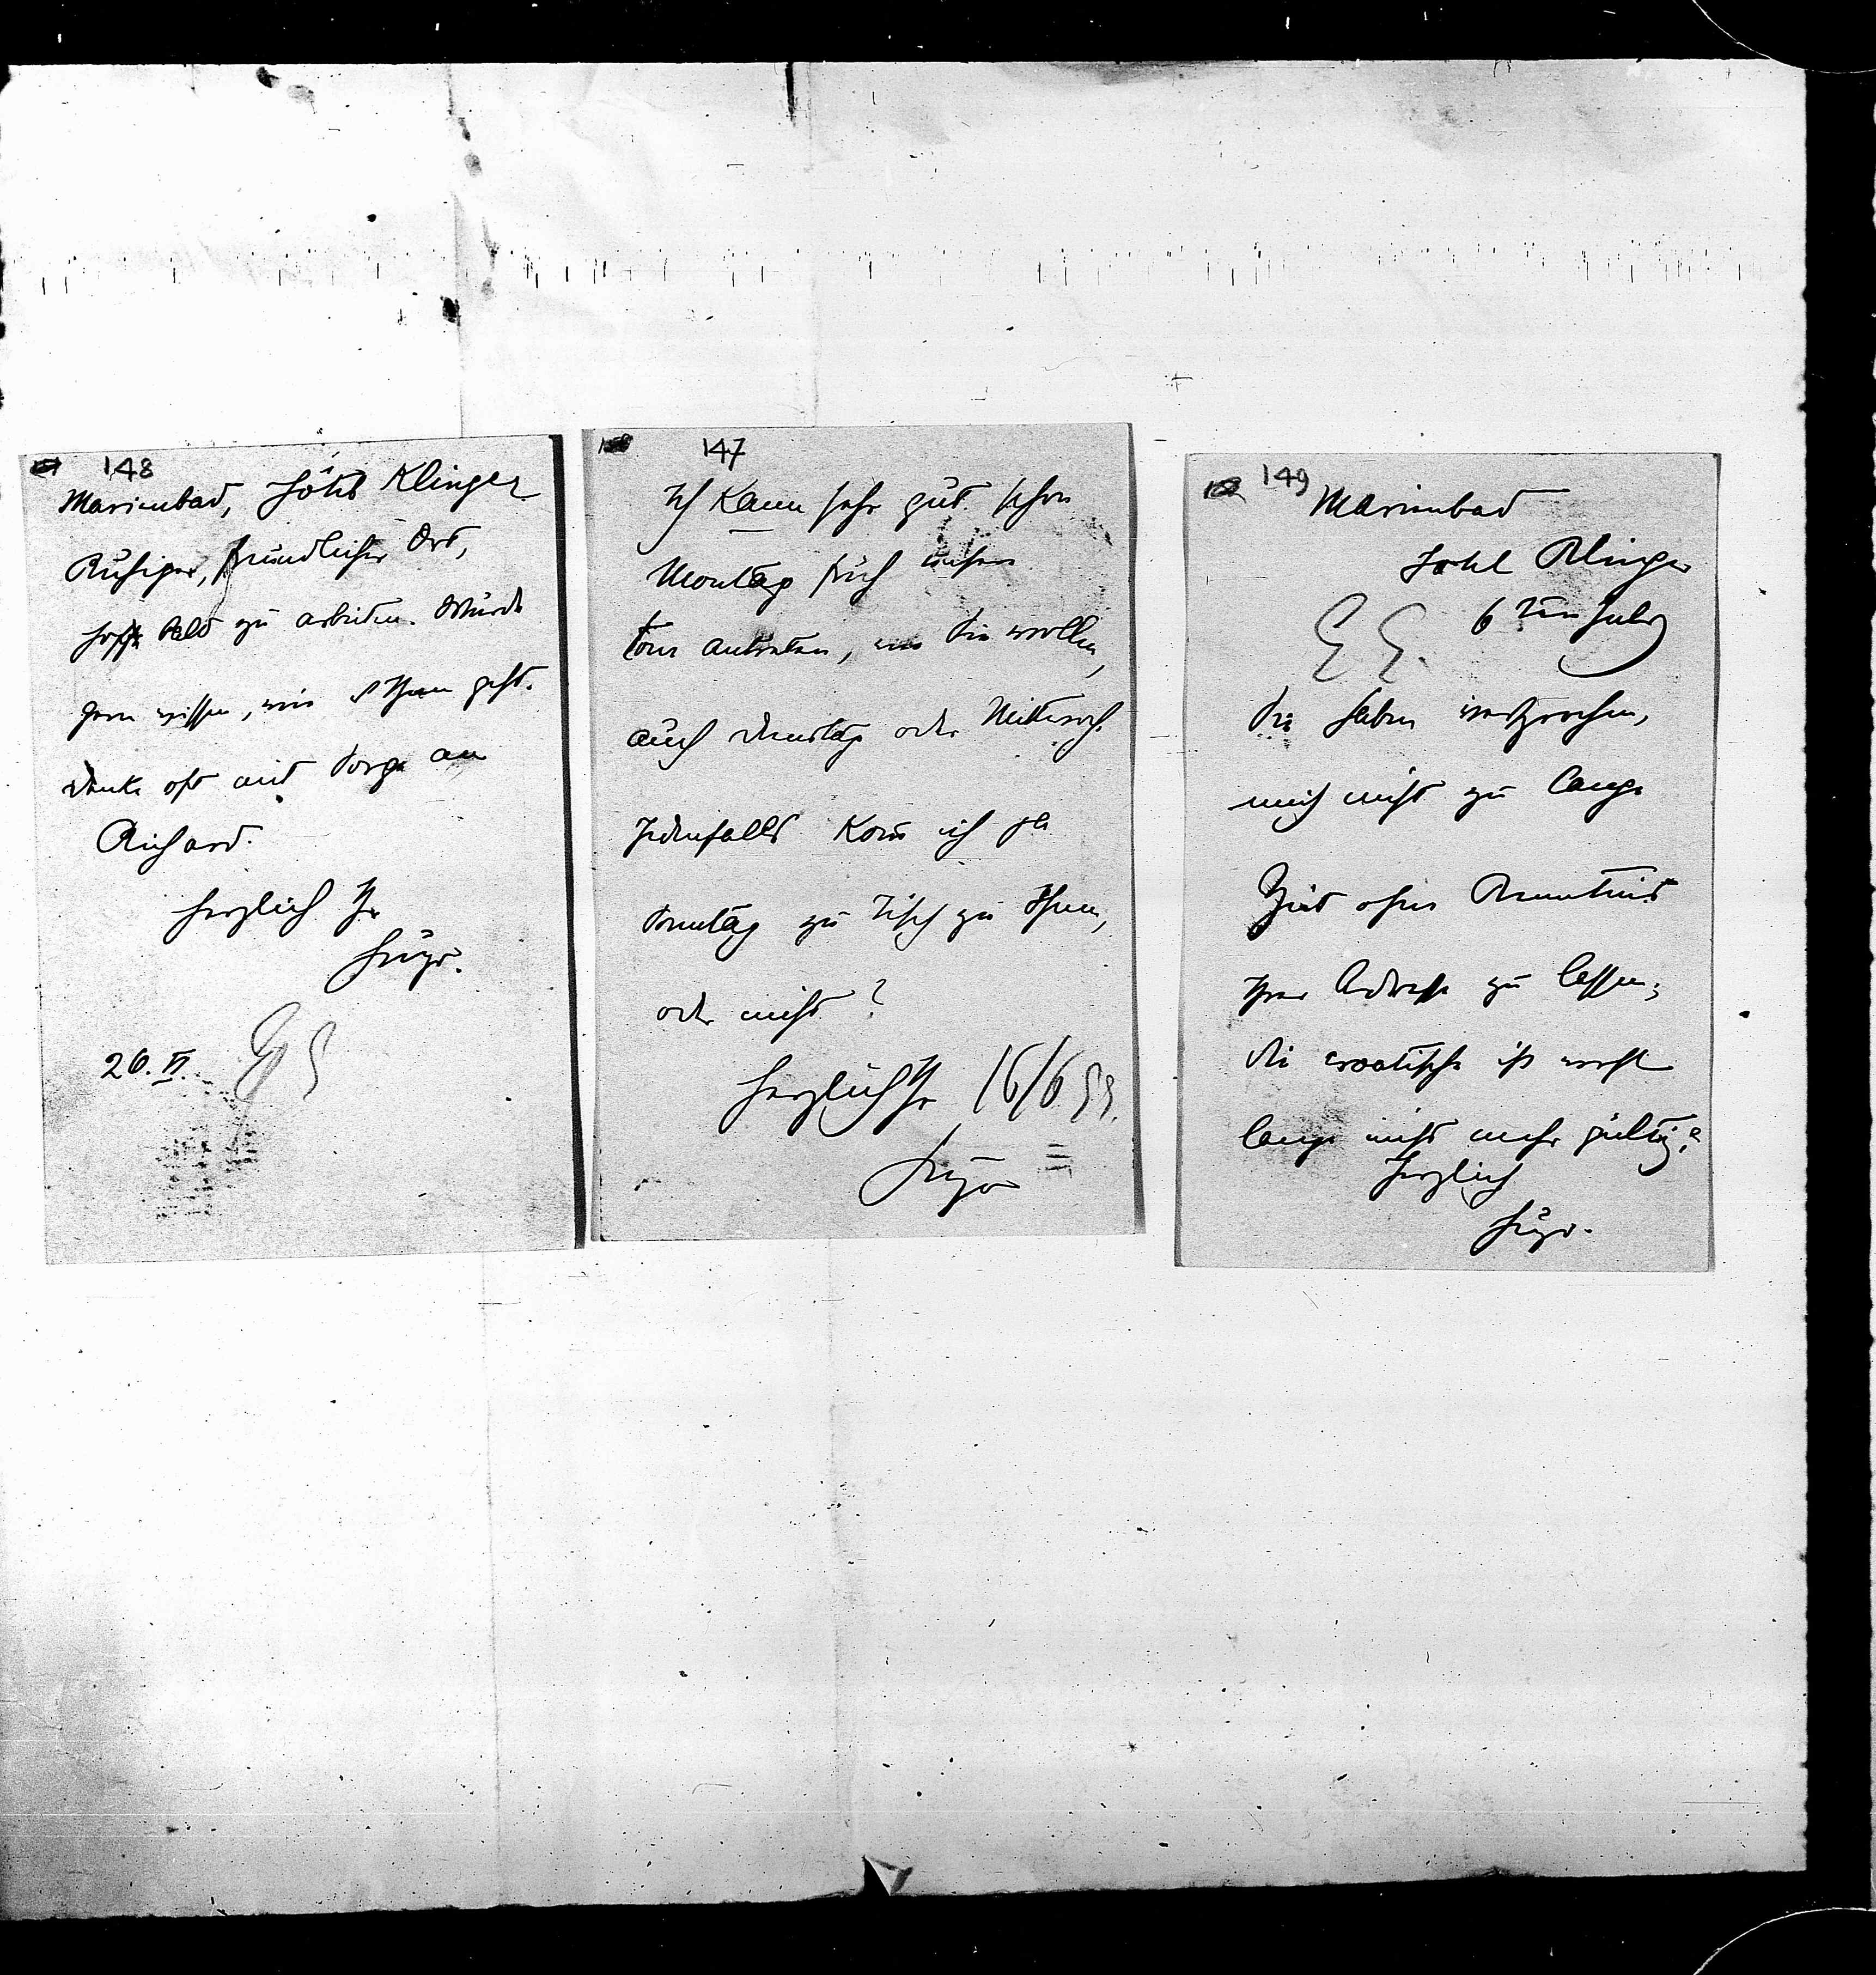 148
Marienbad, Hôtel Klinger
Ruhiger, freundlicher Ort,
hoffe bald zu arbeiten. Würde
gern wissen, wie es Ihnen geht.
Denke oft mit Sorge an
Richard.
Herzlich Ihr
Hugo.
26. VI.
147
Ich kann sehr gut schon
Montag früh unsere
Tour antreten, wenn Sie wollen,
auch Dienstag oder Mittwoch.
Jedenfalls kom̄ ich ja
Sonntag zu Tisch zu Ihnen,
oder nicht?
Herzlich Ihr 16/6 99.
Hugo
149
Marienbad
Hotel Klinger
6ten July
99.
Sie haben versprochen,
mich nicht zu lange
Zeit ohne Kenntnis
Ihrer Adresse zu lassen;
die croatische ist wohl
lange nicht mehr gültig?
Herzlich
Hugo.